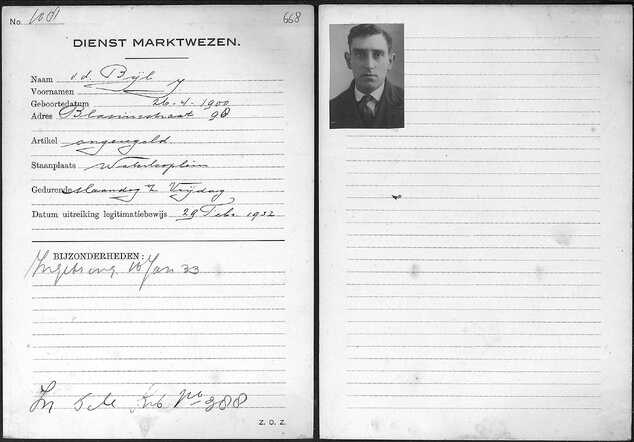 No. 1001 668
DIENST MARKTWEZEN.
Naam v.d. Bijl
Voornamen J
Geboortedatum 26-4-1900
Adres Blasiusstraat 98
Artikel ongeregeld
Staanplaats Waterlooplein
Gedurende Maandag t/m Vrijdag
Datum uitreiking legitimatiebewijs 29 Febr 1932
BIJZONDERHEDEN:
Ingetrong. 16 Jan 33
In No 388
Z. O. Z.